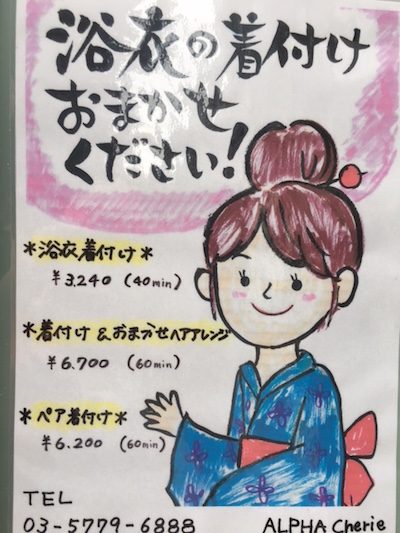 浴衣の着付け
おまかせ
ください!
*浴衣着付け*
¥3,240 (40min)
*着付け&おまかせヘアアレンジ
¥6,700 (60min)
*ペア着付け*
¥6,200 (60min)
TEL
03-5779-6888 ALPHA Cherie